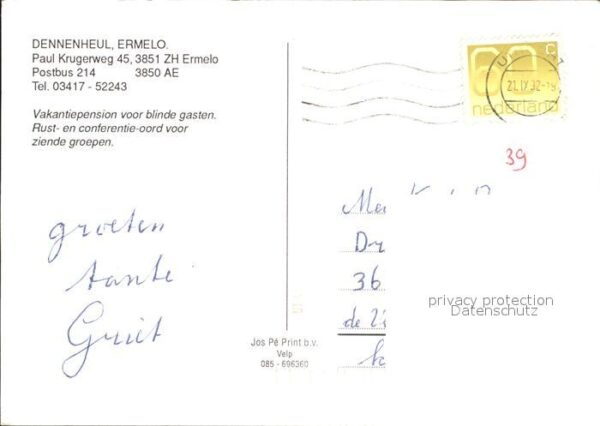 DENNENHEUL, ERMELO.
Paul Krugerweg 45, 3851 ZH Ermelo
Postbus 214 3850 AE
Tel. 03417 - 52243
Vakantiepension voor blinde gasten.
Rust- en conferentie-oord voor
ziende groepen.
60 c
nederland
39
groeten
tante
Griet
36
privacy protection
Datenschutz
Jos Pé Print b.v.
Velp
085 - 696360